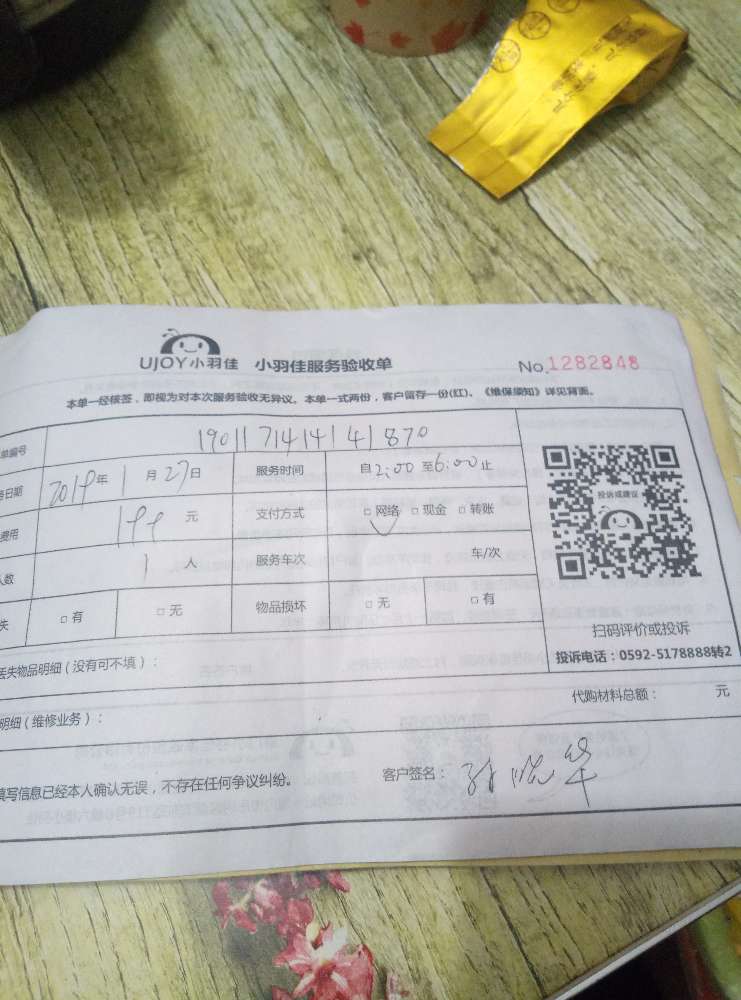 UJOY小羽佳 小羽佳服务验收单 No.1282848
本单一经核签，即视为对本次服务验收无异议。本单一式两份，客户留存一份(红)、《维保须知》详见背面。
单编号 190117141441870
务日期 2019年 1月27日 服务时间 自2:00至6:00止
费用 199 元 支付方式 □网络 □现金 □转账
人数 1 人 服务车次 车/次
失 □有 □无 物品损坏 □无 □有
投诉或建议
扫码评价或投诉
投诉电话：0592-5178888转2
丢失物品明细（没有可不填）：
代购材料总额： 元
明细（维修业务）：
填写信息已经本人确认无误，不存在任何争议纠纷。 客户签名：